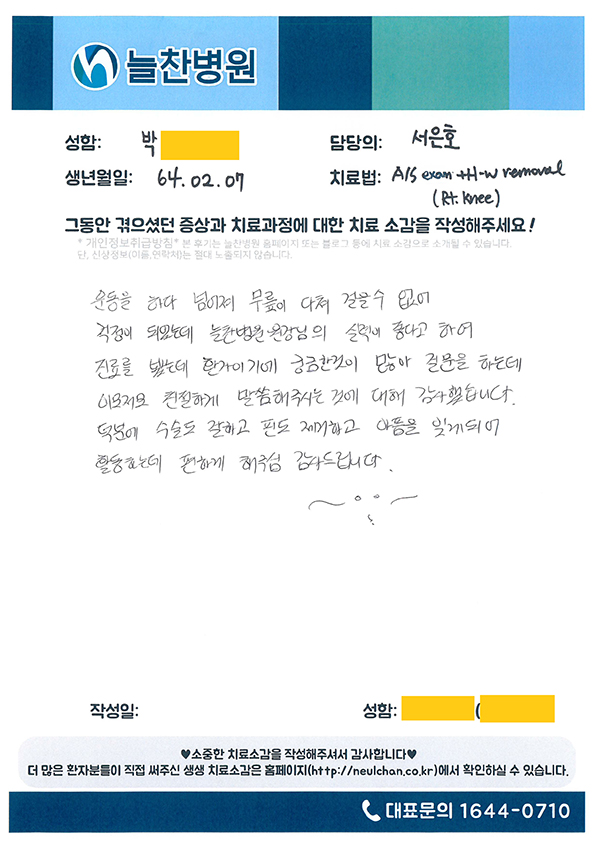 늘찬병원
성함: 박
담당의: 서은호
생년월일: 64.02.07
치료법: A/S exam +H-w removal
(Rt. knee)
그동안 겪으셨던 증상과 치료과정에 대한 치료 소감을 작성해주세요!
* 개인정보취급방침* 본 후기는 늘찬병원 홈페이지 또는 블로그 등에 치료 소감으로 소개될 수 있습니다.
단, 신상정보(이름,연락처)는 절대 노출되지 않습니다.
운동을 하다 넘어져 무릎이 다쳐 걸을수 없어
걱정이 되었는데 늘찬병원 원장님의 실력이 좋다고 하여
진료를 봤는데 환자이기에 궁금한것이 많아 질문을 하는데
이모저모 친절하게 말씀해주시는 것에 대해 감사했습니다.
덕분에 수술도 잘하고 핀도 제거하고 아픔을 잊게되어
활동하는데 편하게 해주심 감사드립니다.
작성일:
성함: (
♥소중한 치료소감을 작성해주셔서 감사합니다♥
더 많은 환자분들이 직접 써주신 생생 치료소감은 홈페이지(http://neulchan.co.kr)에서 확인하실 수 있습니다.
대표문의 1644-0710